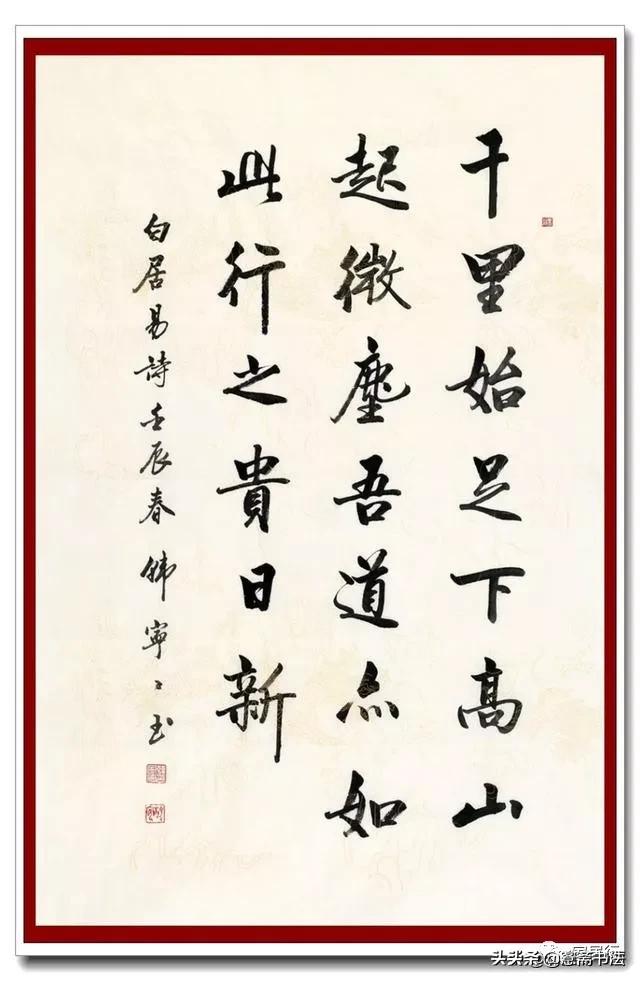 千里始足下高山
起微塵吾道亦如
此行之貴日新
白居易詩壬辰春韩寧〻书
头条@慧斋书法